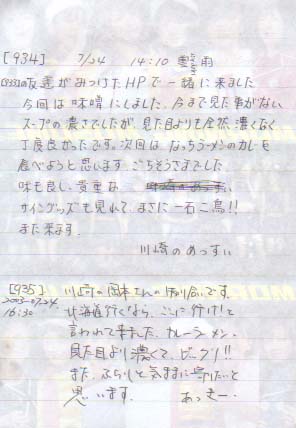 [934] 7/24 14:10 曇
雨
[933]の友達がみつけたHPで一緒に来ました
今回は味噌にしました。今まで見た事がない
スープの濃さでしたが、見た目よりも全然濃くなく
丁度良かったです。次回は なっちラーメンのカレーを
食べようと思います。ごちそうさまでした
味も良し、貴重な
サイングッズも見れて、まさに一石二鳥!!
また来ます。
川崎のめっすい
[935] 川崎の岡本さんの知り合いです。
2003-07-24 北海道行くなら、ここに行け!と
16:30 言われて来ました。カレーラーメン、
見た目より濃くて、ビックリ!!
また、ふらりと気ままに寄りたいと
思います。 あっきー